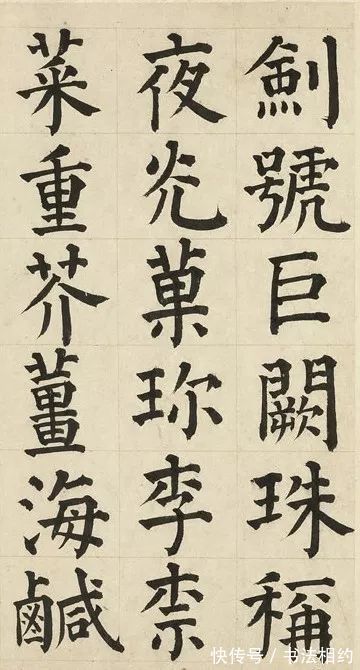 劍號巨闕珠稱
夜光菓珎李柰
菜重芥薑海鹹
快传号/书法相约